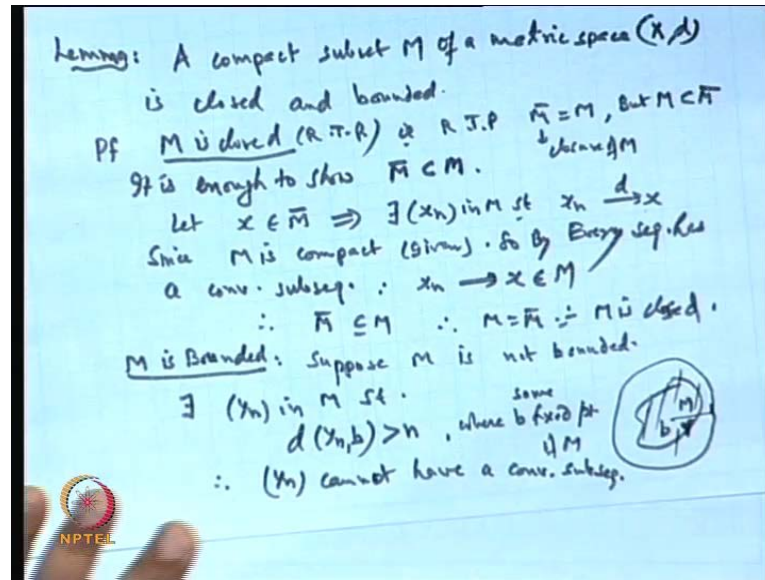 Lemma: A compact subset M of a metric space (X,d)
is closed and bounded.
Pf M is closed (R.T.P) ie R.T.P M̄ = M, But M ⊂ M̄
closure of M
It is enough to show M̄ ⊂ M.
Let x ∈ M̄ ⇒ ∃ (xn) in M st xn →d x
Since M is compact (given). So By Every seq. has
a conv. subseq. ∴ xn → x ∈ M
∴ M̄ ⊆ M ∴ M = M̄ ∴ M is closed.
M is Bounded: Suppose M is not bounded.
∃ (yn) in M st.
d(yn,b) > n, where b some fixed pt of M
M
b
∴ (yn) cannot have a conv. subseq.
NPTEL